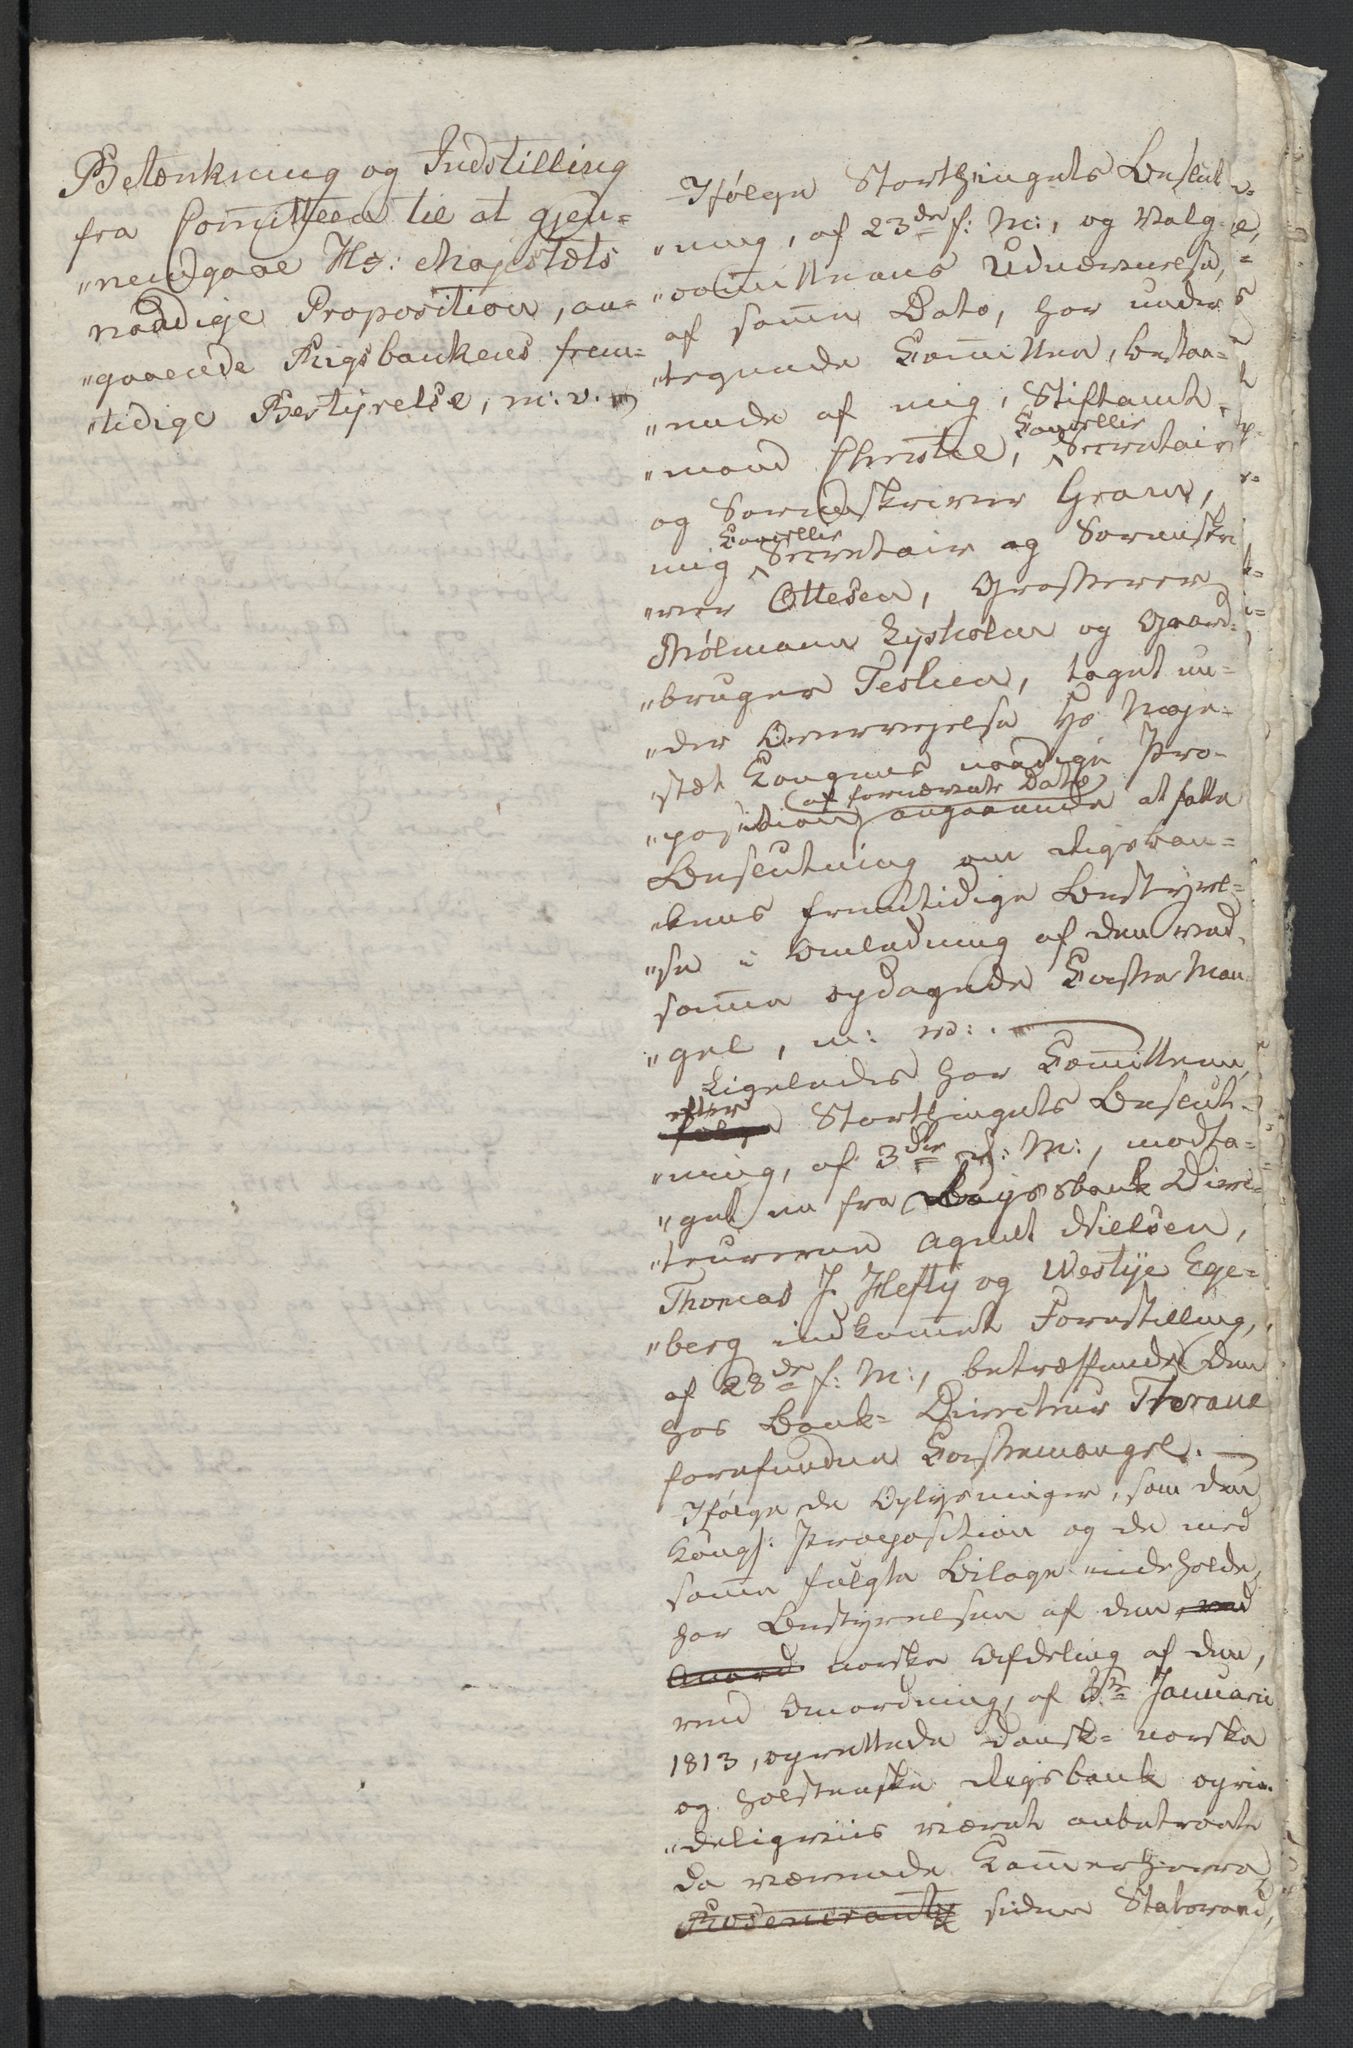 Betænkning og Indstilling
fra Comitteen til at gjen-
"nemgaae Hs: Majestæts
naadige Proposition, an-
"gaaende Rigsbankens frem-
"tidige Bestyrelse, m: v.
Ifølge Storthingets Beslut-
"ning, af 23de f: M:, og Valg-
"comitteens Udnævnelse,
af samme Dato, har under-
"tegnede Committee, bestaa-
"ende af mig, Stiftamt-
"mand Christie, Cancellie Secretair
og Sorenskriver Gram,
mig Cancellie Secretair og Sorenskri
"ver Ottesen, Grosserer
Mølmann Lysholm og Gaard-
"bruger Teslien, taget un-
"der Overvejelse Hs Maje-
stæt Kongens naadige Pro-
"position af fornævnte Dato angaaende at fatte
Beslutning om Rigsban-
"kens fremtidige Bestyrel-
"se i Anledning af den ved
samme opdagede Casse Man-
"gel, m: v:.
Ligeledes har Comitteen,
efter følge Storthingets Beslut-
"ning, af 3die d: M:, modta-
"get en fra Rigsbank Direc-
"teurerne Agnet Nielsen,
Thomas J. Hefty og Westye Ege-
"berg indkommet Forestilling,
af 28de f: M:, betræffende den
hos Bank-Directeur Thrane
forefundne Cassemangel.
Ifølge de Oplysninger, som den
Kongl: Proposition og de med
samme fulgte Bilage indeholde,
har Bestyrelsen af den ved
Anord norske Afdeling af den,
ved Anordning, af 5te Januarii
1813, oprettede dansk-norske
og holstenske Rigsbank oprin-
"deligviis været anbetroet
da værende Kammerherre
Rosencrantz siden Statsraad,